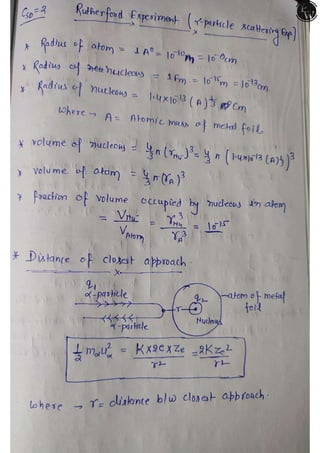 C50=2
Rutherford Experiment (γ-particle scattering Exp)
* Radius of atom = 1A° = 10⁻¹⁰m = 10⁻⁸cm
* Radius of nucleous = 1fm = 10⁻¹⁵m = 10⁻¹³cm
* Radius of nucleous = 1.4×10⁻¹³ (A)^1/3 cm
where → A = Atomic mass of metal foil.
* volume of nucleous = 4/3 π (r_Nu)³ = 4/3 π (1.4×10⁻¹³ (A)^1/3)³
* volume of atom = 4/3 π (r_A)³
? fraction of volume occupied by nucleous in atom
= V_Nu / V_Atom = r_Nu³ / r_A³ = 10⁻¹⁵
* Distance of closest approach.
q₁
α-particle
q₂
atom of metal foil
r
Nucleus
α-particle
1/2 mαu²α = K×2e×Ze / r² = 2KZe² / r²
where → r = distance b/w closest approach.